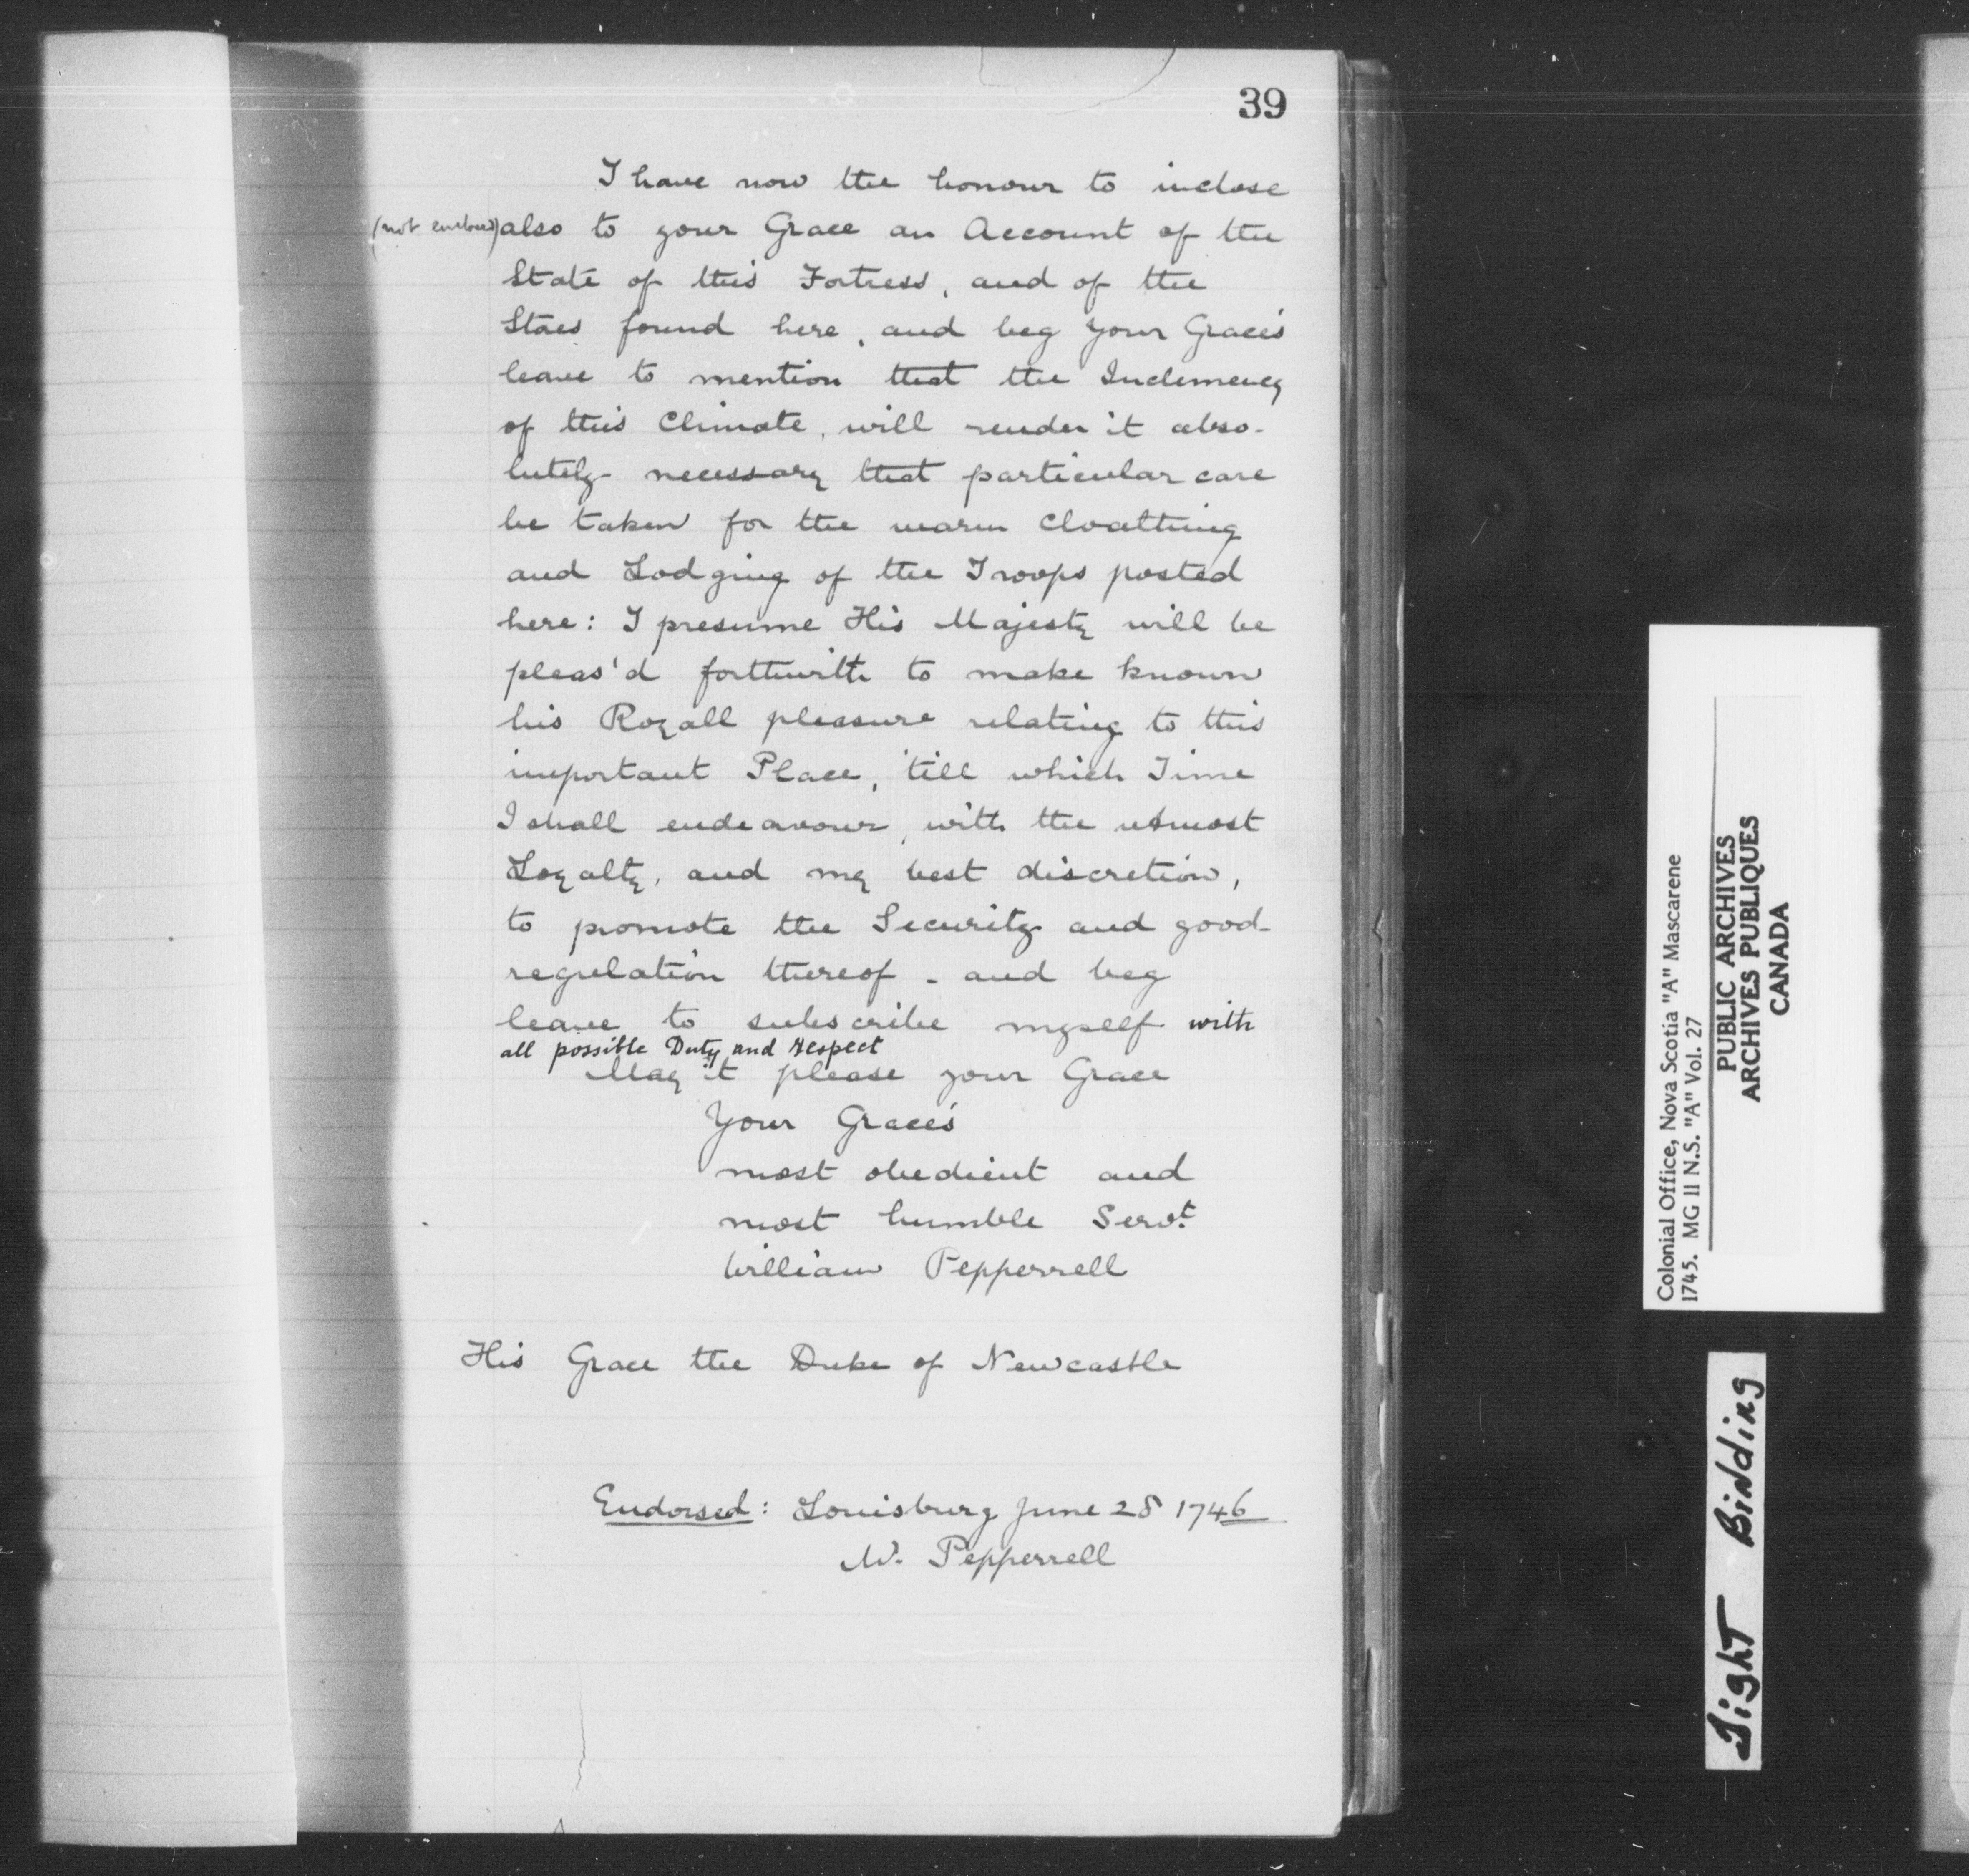 39
I have now the honour to inclose
(not enclosed) also to your Grace an Account of the
State of this Fortress, and of the
Stores found here, and beg your Grace's
leave to mention that the Inclemency
of this Climate, will render it abso-
lutely necessary that particular care
be taken for the warm Cloathing
and Lodging of the Troops posted
here: I presume His Majesty will be
pleas'd forthwith to make known
his Royall pleasure relating to this
important Place, 'till which Time
I shall endeavour, with the utmost
Loyalty, and my best discretion,
to promote the Security and good
regulation thereof - and beg
leave to subscribe myself with
all possible Duty and Respect
May it please your Grace
Your Grace's
most obedient and
most humble Servt.
William Pepperrell
His Grace the Duke of Newcastle
Endorsed: Louisburg June 28 1746
W. Pepperrell
Colonial Office, Nova Scotia "A" Mascarene
1745. MG 11 N.S. "A" Vol. 27
PUBLIC ARCHIVES
ARCHIVES PUBLIQUES
CANADA
Tight Binding